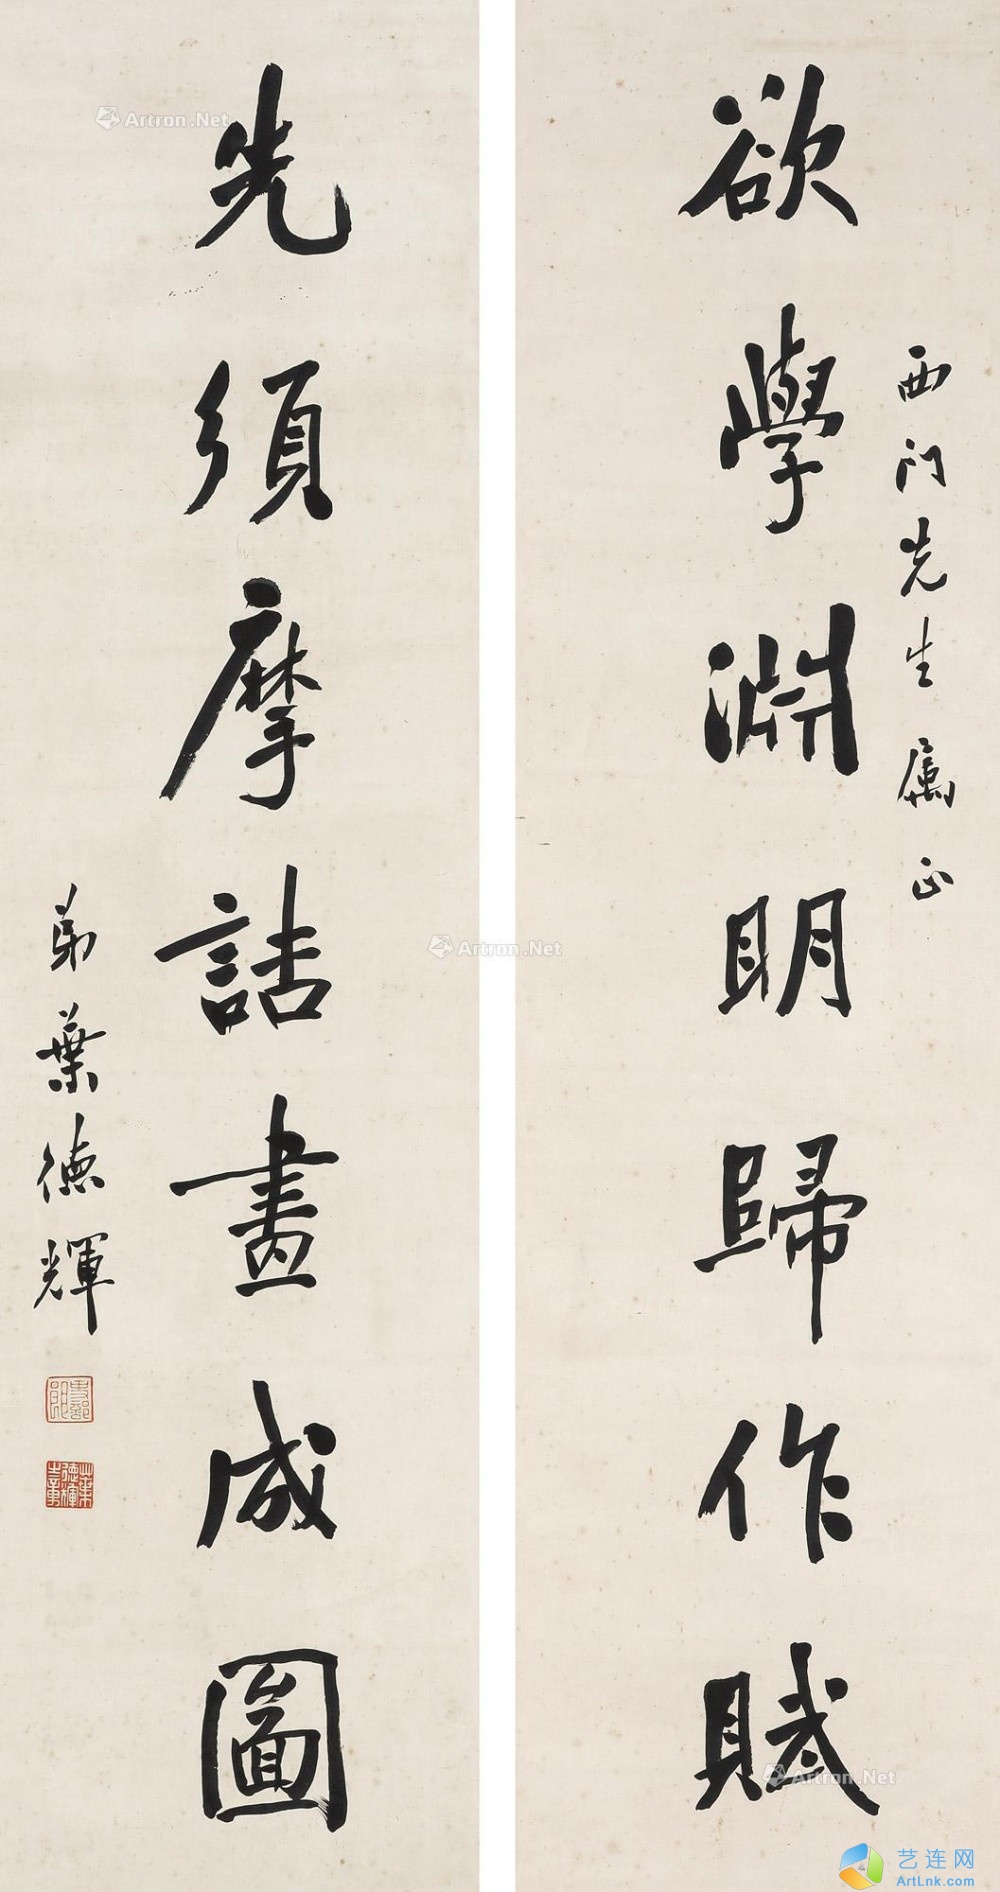 欲學淵明歸作賦
西门先生属正
先須摩詰畫成圖
弟葉德輝
吏部郎
葉德輝章
Artron.Net
Artron.Net
Artron.Net
艺连网
ArtLnk.com